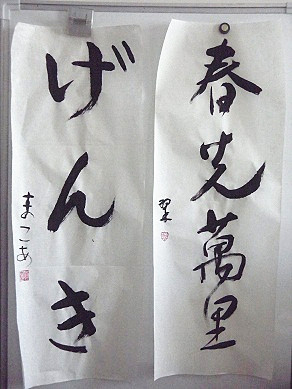 春光萬里
翠
げんき
まこあ